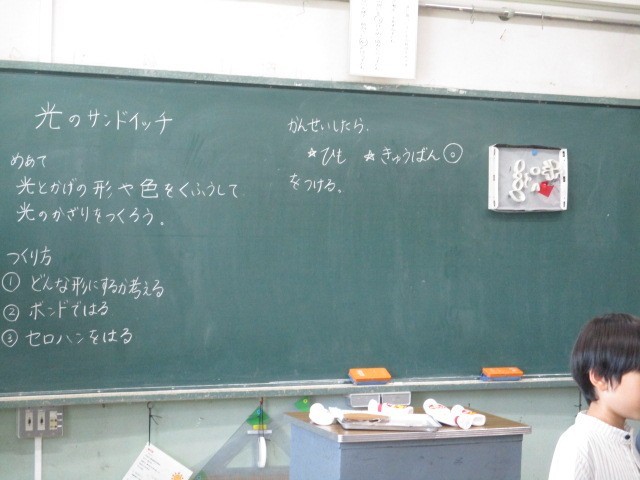 光のサンドイッチ
めあて
光とかげの形や色をくふうして
光のかざりをつくろう。
つくり方
① どんな形にするか考える
② ボンドではる
③ セロハンをはる
かんせいしたら、
★ひも ★きゅうばん◎
をつける。